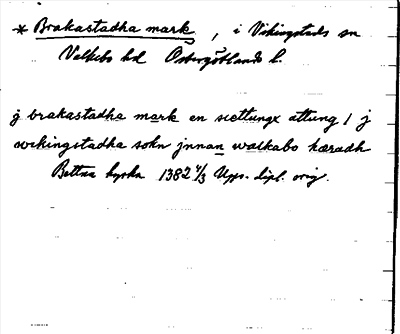 * Brakastadha mark, i Vikingstads sn
Valkebo hd Östergötlands l.
j brakastadha mark en siettungx attung / j
wikingstadha sokn jnnan walkabo hæradh
Bettna kyrka 1382 4/3 Upps. dipl. orig.